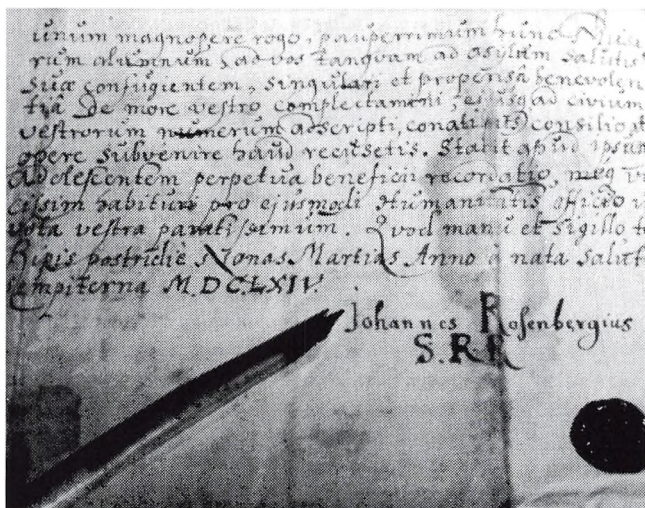 unum magnopere rogo, pauperrimum hunc
rum alumnum, ad vos tanquam ad asylum salutis
suæ confugientem, singulari et propensa benevolen
tia de more vestro complectamini, ejusq ad civium
vestrorum numerum adscripti, conatibus consilio et
opere subvenire haud recusetis. Stabit apud ipsum
adolescentem perpetua beneficii recordatio, meq vi
cissim habituri pro ejusmodi Humanitatis officio
vota vestra paratissimum. Quod manu et sigillo
Ripis postridie Nonas Martias Anno a nata salut
sempiterna M.DCLXIV.
Johannes Rosenbergius
S.RR